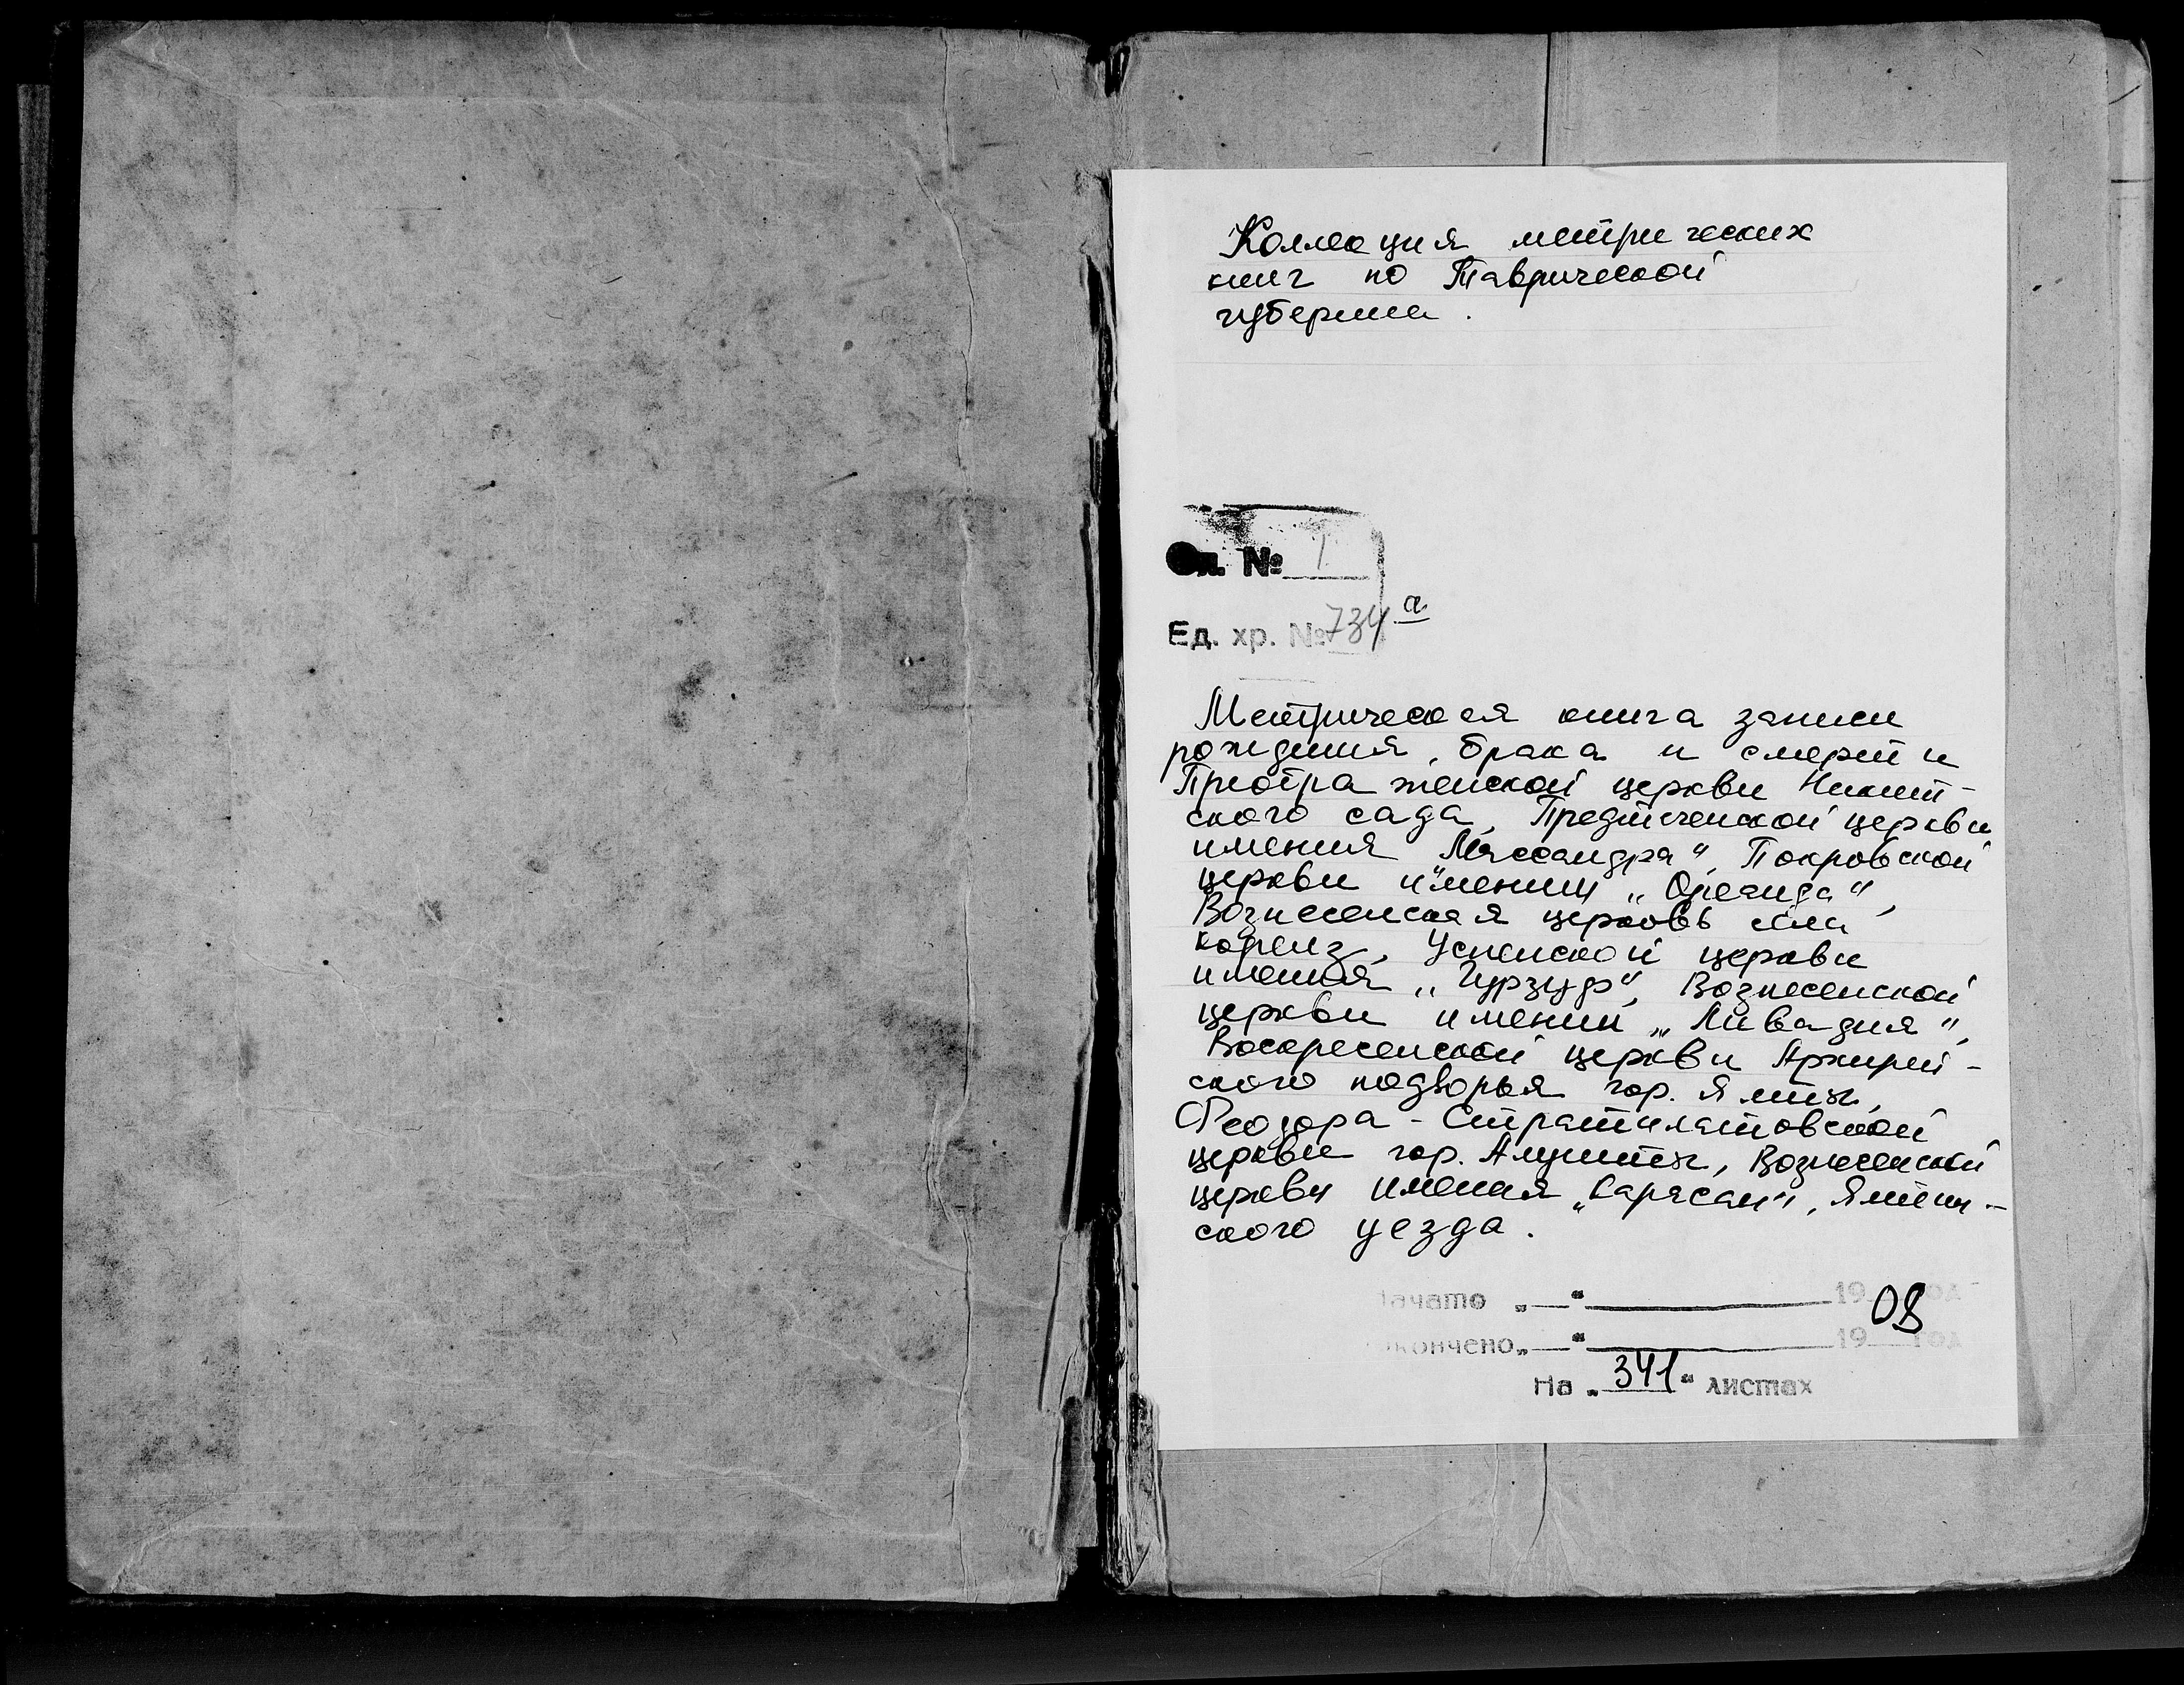 Коллекция метрических
книг по Таврической
губернии.
Оп. № 1
Ед. хр. № 734 а
Метрическая книга записи
рождения, брака и смерти
Преображенской церкви Никит-
ского сада, Предтеченской церкви
имения „Массандра“, Покровской
церкви имении „Ореанда“,
Вознесенская церковь села
Кореиз, Успенской церкви
имения „Гурзуф“, Вознесенской
церкви имении „Ливадия“,
Воскресенской церкви Архирей-
ского подворья гор. Ялты,
Феодора-Стратилатовской
церкви гор. Алушты, Вознесенской
церкви имения „Карасан“, Ялтин-
ского уезда.
Начато „—“ 1908 год
Окончено „—“ 19 год
На „341“ листах